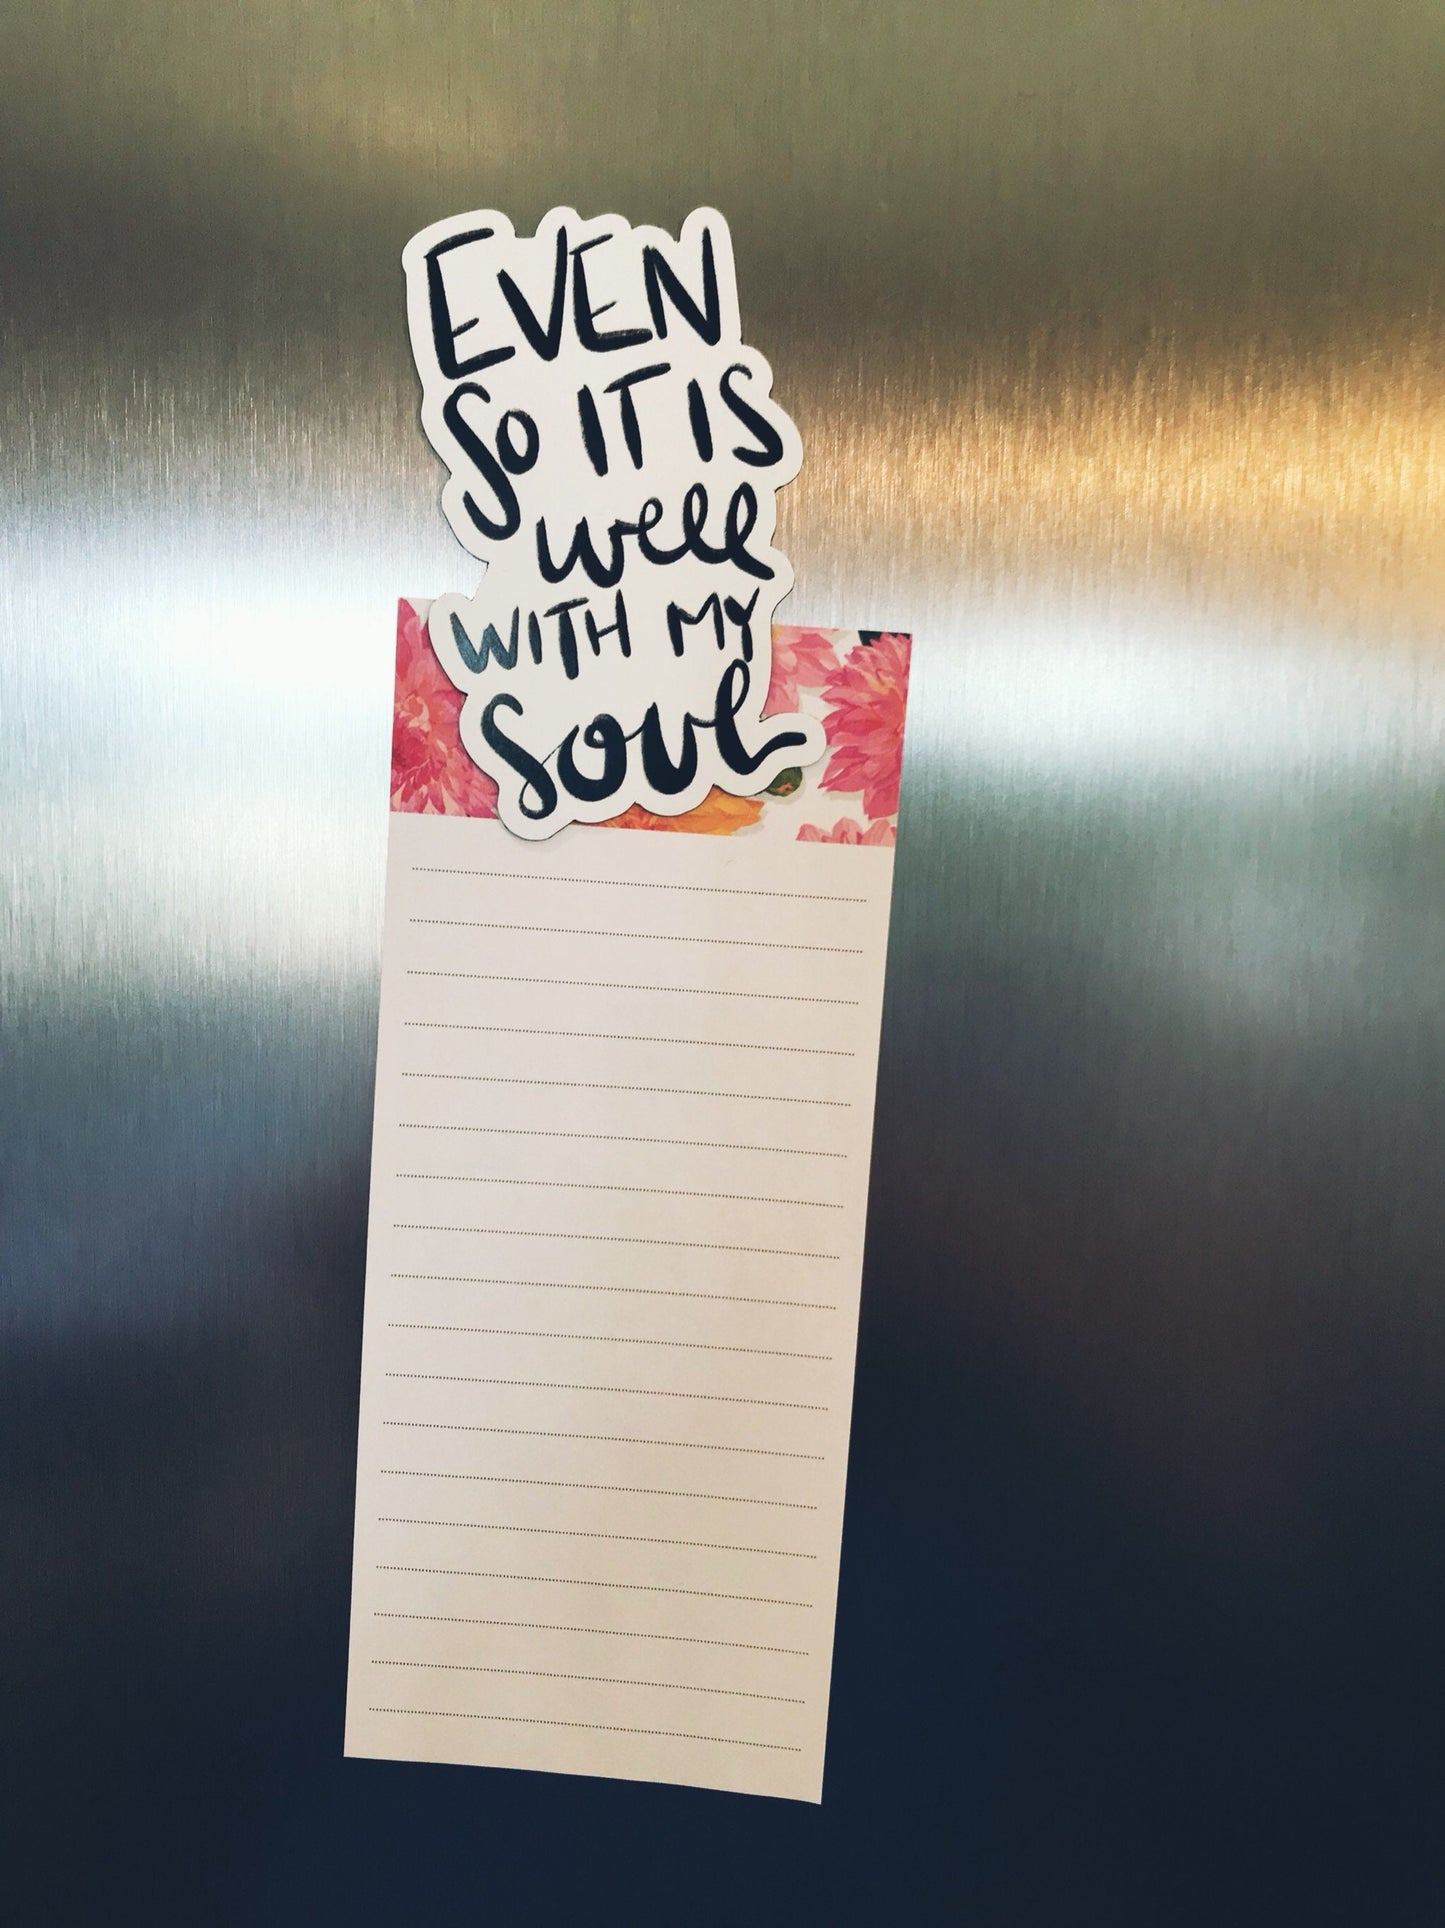 EVEN
So IT IS
well
WITH MY
Soul